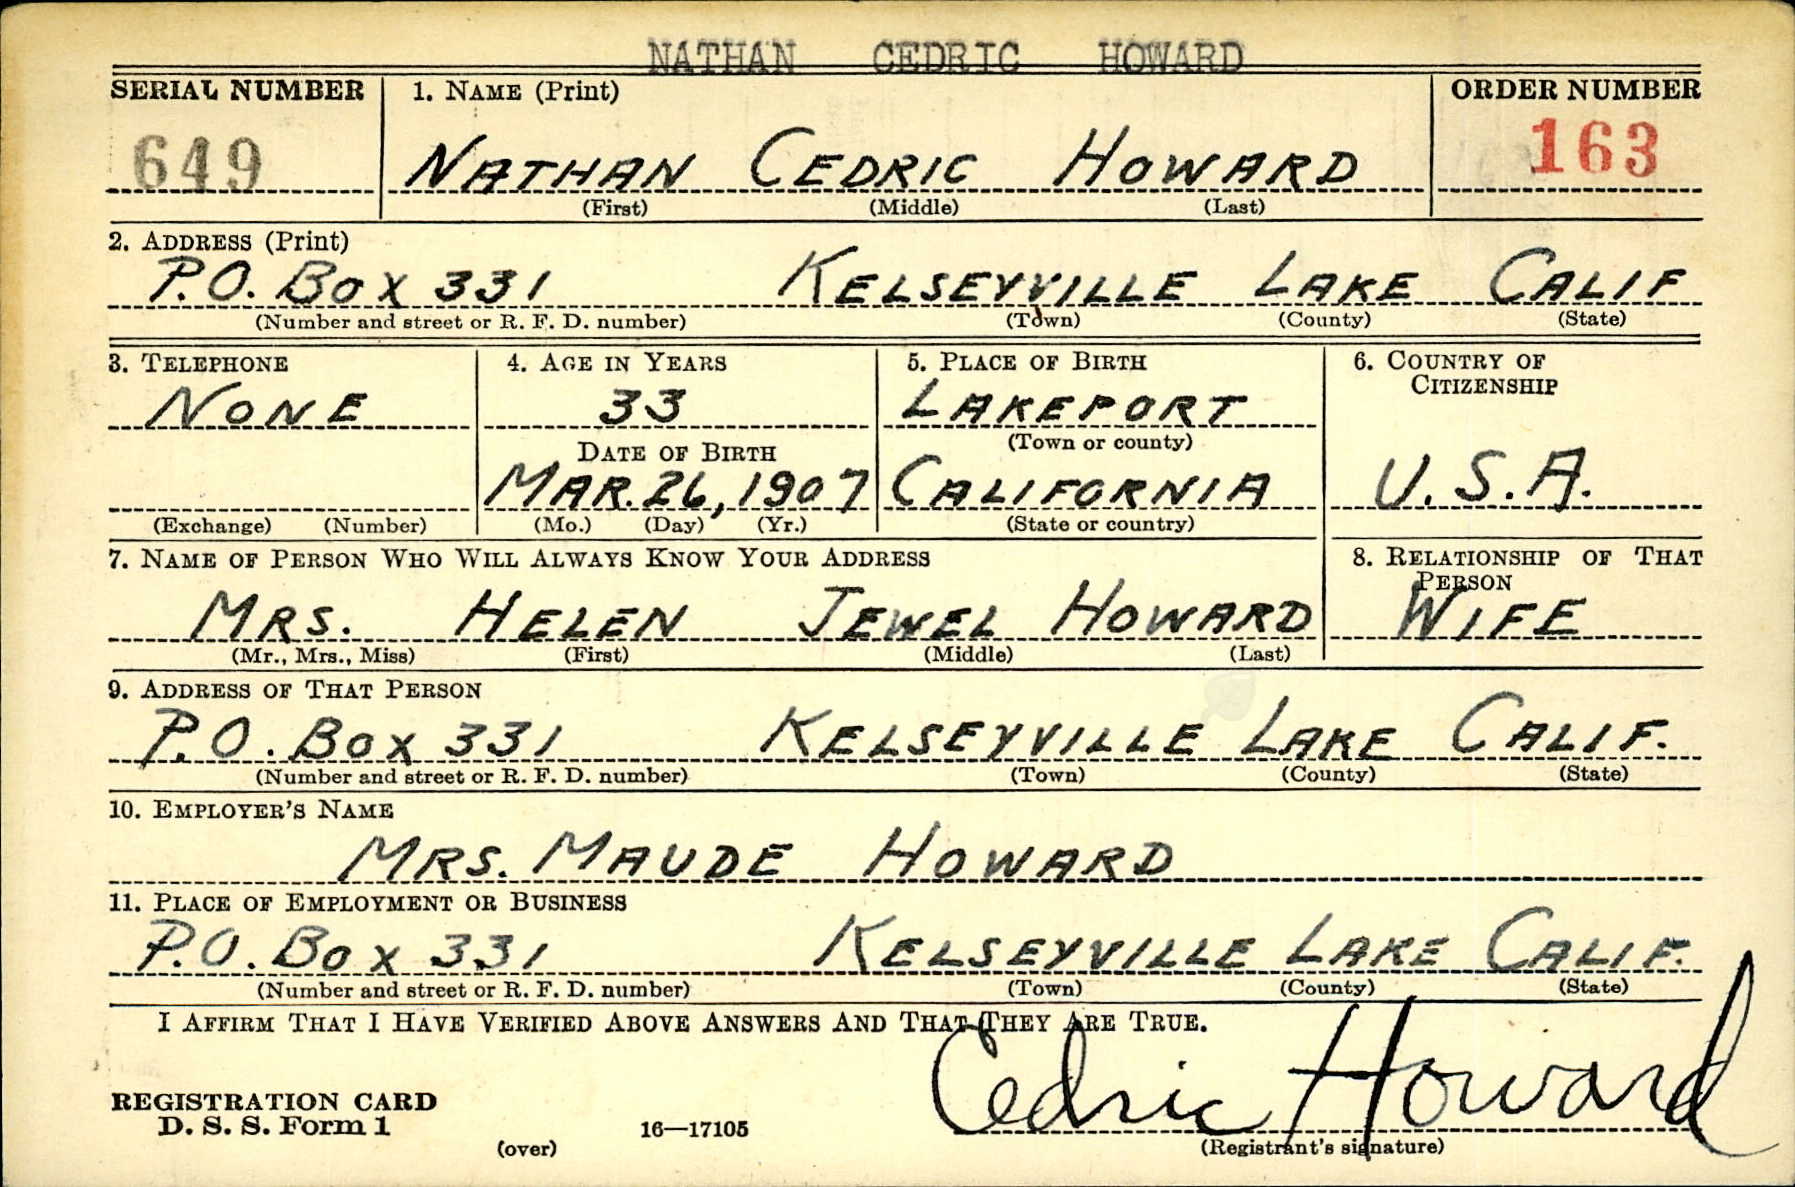 NATHAN CEDRIC HOWARD
SERIAL NUMBER 1. NAME (Print) ORDER NUMBER
649 NATHAN CEDRIC HOWARD 163
(First) (Middle) (Last)
2. ADDRESS (Print)
P.O. BOX 331 KELSEYVILLE LAKE CALIF
(Number and street or R. F. D. number) (Town) (County) (State)
3. TELEPHONE 4. AGE IN YEARS 5. PLACE OF BIRTH 6. COUNTRY OF
CITIZENSHIP
NONE 33 LAKEPORT
(Town or county)
DATE OF BIRTH
MAR. 26, 1907 CALIFORNIA U.S.A.
(Exchange) (Number) (Mo.) (Day) (Yr.) (State or country)
7. NAME OF PERSON WHO WILL ALWAYS KNOW YOUR ADDRESS 8. RELATIONSHIP OF THAT
PERSON
MRS. HELEN JEWEL HOWARD WIFE
(Mr., Mrs., Miss) (First) (Middle) (Last)
9. ADDRESS OF THAT PERSON
P.O. BOX 331 KELSEYVILLE LAKE CALIF.
(Number and street or R. F. D. number) (Town) (County) (State)
10. EMPLOYER'S NAME
MRS. MAUDE HOWARD
11. PLACE OF EMPLOYMENT OR BUSINESS
P.O. BOX 331 KELSEYVILLE LAKE CALIF.
(Number and street or R. F. D. number) (Town) (County) (State)
I AFFIRM THAT I HAVE VERIFIED ABOVE ANSWERS AND THAT THEY ARE TRUE.
Cedric Howard
REGISTRATION CARD
D. S. S. Form 1
(over) 16—17105 (Registrant's signature)